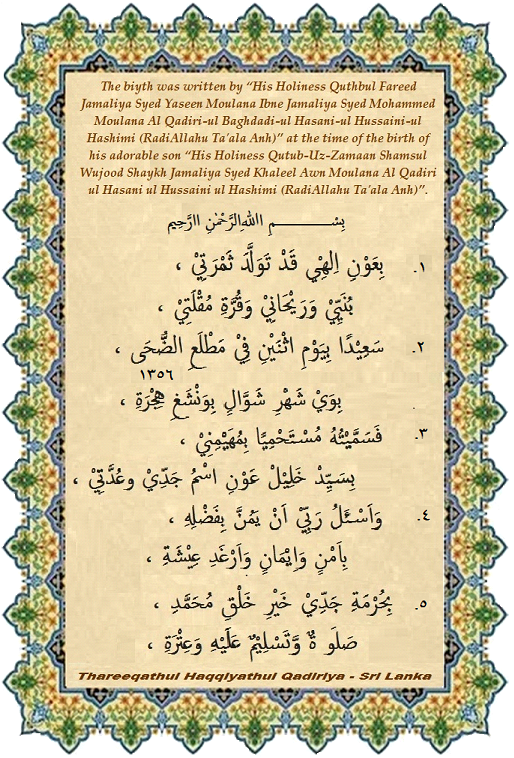 The biyth was written by “His Holiness Quthbul Fareed
Jamaliya Syed Yaseen Moulana Ibne Jamaliya Syed Mohammed
Moulana Al Qadiri-ul Baghdadi-ul Hasani-ul Hussaini-ul
Hashimi (RadiAllahu Ta'ala Anh)” at the time of the birth of
his adorable son “His Holiness Qutub-Uz-Zamaan Shamsul
Wujood Shaykh Jamaliya Syed Khaleel Awn Moulana Al Qadiri
ul Hasani ul Hussaini ul Hashimi (RadiAllahu Ta'ala Anh)”.
بِسْــــــمِ اللهِ الرَّحْمٰنِ الرَّحِيْمِ
١. بِعَوْنِ اِلٰهِيْ قَدْ تَوَلَّدَ ثَمْرَتِيْ ،
بُنَيِّيْ وَرَيْحَانِيْ وَقُرَّةِ مُقْلَتِيْ ،
٢. سَعِيْدًا بِيَوْمِ اثْنَيْنِ فِيْ مَطْلَعِ الضُّحَى ،
١٣٥٦
بِوَيْ شَهْرِ شَوَّالِ بِوَنْشَغِ هِجْرَةِ ،
٣. فَسَمَّيْتُهُ مُسْتَحْمِيًا بِمُهَيْمِنِيْ ،
بِسَيِّدْ خَلِيْلْ عَوْنِ اسْمُ جَدِّيْ وعُدَّتِيْ ،
٤. وَاَسْئَلُ رَبِّيْ اَنْ يَمُنَّ بِفَضْلِهِ ،
بِاَمْنٍ وَاِيْمَانٍ وَاَرْغَدِ عِيْشَةِ ،
٥. بِحُرْمَةِ جَدِّيْ خَيْرِ خَلْقٍ مُحَمَّدِ ،
صَلَو ةٌ وَّتَسْلِيْمٌ عَلَيْهِ وَعِتْرَةِ ،
Thareeqathul Haqqiyathul Qadiriya - Sri Lanka